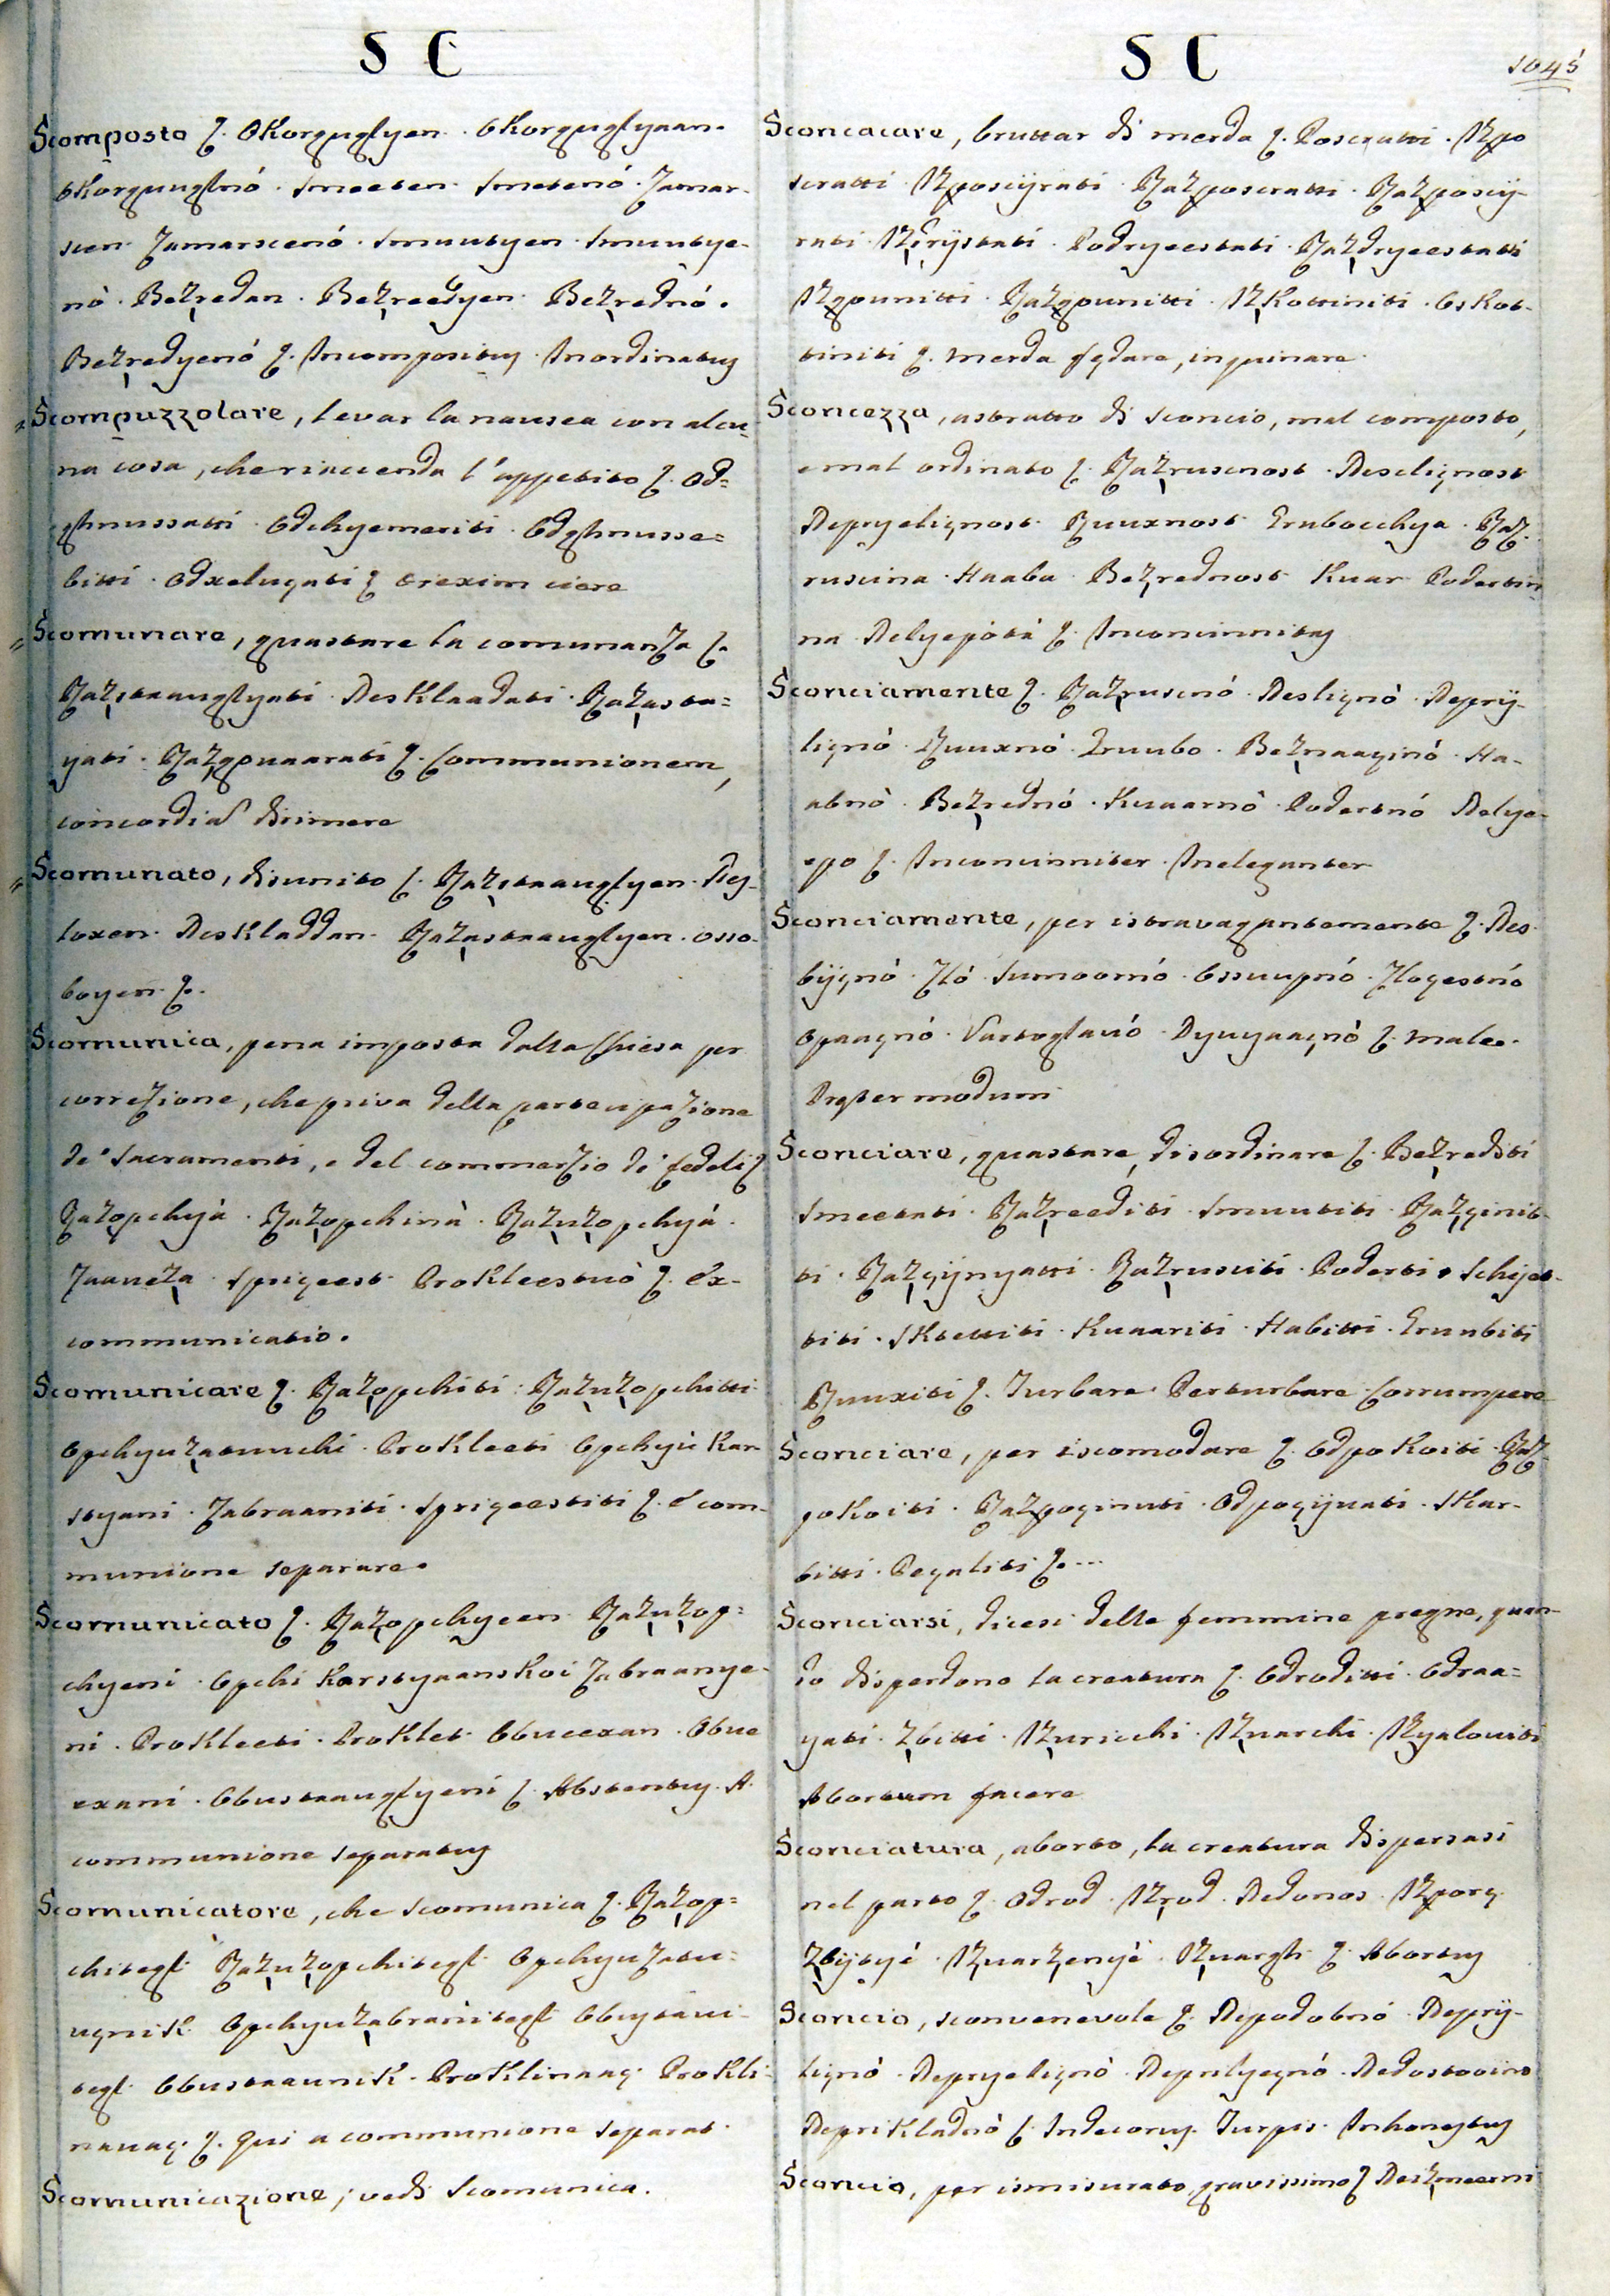 S C
Scomposto ζ. OKorguglyen. OKorguglyaan.
OKorguuglnó. Smeeten. Smetenó. Zamar-
scen. Zamarscenó. Smuutyen. Smuutye-
nò. Bezredan. Bezreedyen. Bezrednó.
Bezredyenó ζ. Incompositus. Inordinatus
Scompuzzolare, levar la nausea con alcu-
na cosa, che riaccenda l'appetito ζ. Od=
ghnussatti. Odchyemeriti. Odghnusse=
bitti. Odxelugati ζ orexim ciere
Scomunare, guastare la comunanza ζ.
Razstaauglyati. DesKlaadati. Razasta=
yati. Razgovaarati ζ. Communionem,
concordia dirimere
Scomunato, disunito ζ. Razstaauglyen. Des-
loxen. DesKladdan. Razastaauglyen. osso-
boyen ζ.
Scomunica, pena imposta dalla Chiesa per
correzione, che priva della partecipazione
de' Sacramenti, e del commerzio de' fedeli ζ
Razopchyà. Razopchinà. Razuzopchyà.
Zaaveza. Sprigeest. ProKleestuò ζ. Ex-
communicatio.
Scomunicare ζ. Razopchiti. Razuzopchitti
Opchyuzatuuchi. ProKleeti Opchyù Kar-
styani. Zabraaniti. Sprigeestiti ζ. è com-
munione separare.
Scomunicato ζ. Razopchyeen Razuzop=
chyeni. Opchi KarstyaansKoi Zabraanye-
ni. ProKleeti. ProKlet. Obveexan. Obve
exani. Obustaauglyeni ζ. Abstentus. A
communione separatus
Scomunicatore, che scomunica ζ. Razop=
chitegl. Razuzopchitegl. Opchyuzatu=
ugniK. Opchyuzabranitegl Obustaui-
tegl. ObustaauniK. ProKlinaag. ProKli-
nauag. ζ. Qui a communione separat.
Scomunicazione, vedi Scomunica.
S C
1045
Sconcacare, bruttar di merda ζ. Posceratti. Izpo
sceratti Izposcÿrati. Razposcratti. Razposcÿ-
rati. Izdrÿstati. Podryeestati. Razdryeestatti
Izgounitti. Razgounitti. IzKottiniti. OsKot-
tiniti ζ. merda fędare, inquinare.
Sconcezza, astratto di sconcio, mal composto,
e mal ordinato ζ. Razruscnost. Neslignost
Nepryelignost. Ruuxnost Grubocchya. Raz-
ruscina. Haaba. Bezrednost Kuar Podertin-
na. Nelyepotà ζ. Inconcinnitas
Sconciamente ζ. Razruscnó. Neslignò. Neprÿ-
lignò. Ruuxnò. Gruubo. Beznaaginò. Ha-
abnò. Bezrednó. Kuaarnò. Podertnó Nelye-
epo ζ. Inconcinniter. Ineleganter
Sconciamente, per istravagantemente ζ. Nes
bÿgnò. Zlò. Sumoornó. Ossuupnó. Zlogestnó
Opaagnó. Vartoglauó. Dyuyaagnò ζ. male.
Pręter modum
Sconciare, guastare, disordinare ζ. Bezrediti
Smeetati. Razreediti. Smuutiti. Razginit-
ti. Razgÿnyatti. Razrusciti. Poderti. Schyet-
titi. SKtettiti. Kuaariti. Habitti. Gruubiti
Ruuxiti ζ. Turbare. Perturbare. Corrumpere
Sconciare, per iscomodare ζ. OdpoKoiti. Raz-
poKoiti. Razpoginuti. Odpogÿuati. SKar-
bitti. Pegaliti ζ...
Sconciarsi, dicesi delle femmine pregne, quan-
do disperdono la creatura ζ. Odroditti. Odraa=
yati. Zbitti. Izuricchi. Izuarchi. Izyalouiti
Abortum facere
Sconciatura, aborto, la creatura dispersasi
nel parto ζ. Odrod. Izrod. Nedonos. Izporg.
Zbÿtyé. Izuarzenyè. Izuargh ζ. Abortus
Sconcio, sconvenevole ζ. Nepodobnó. Neprÿ-
lignò. Nepryelignò. Neprilyegnó. Nedostooino
NepriKladnó ζ. Indecorus. Turpis. Inhonestus
Sconcio, per ismisurato, gravissimo ζ Neizmeerni